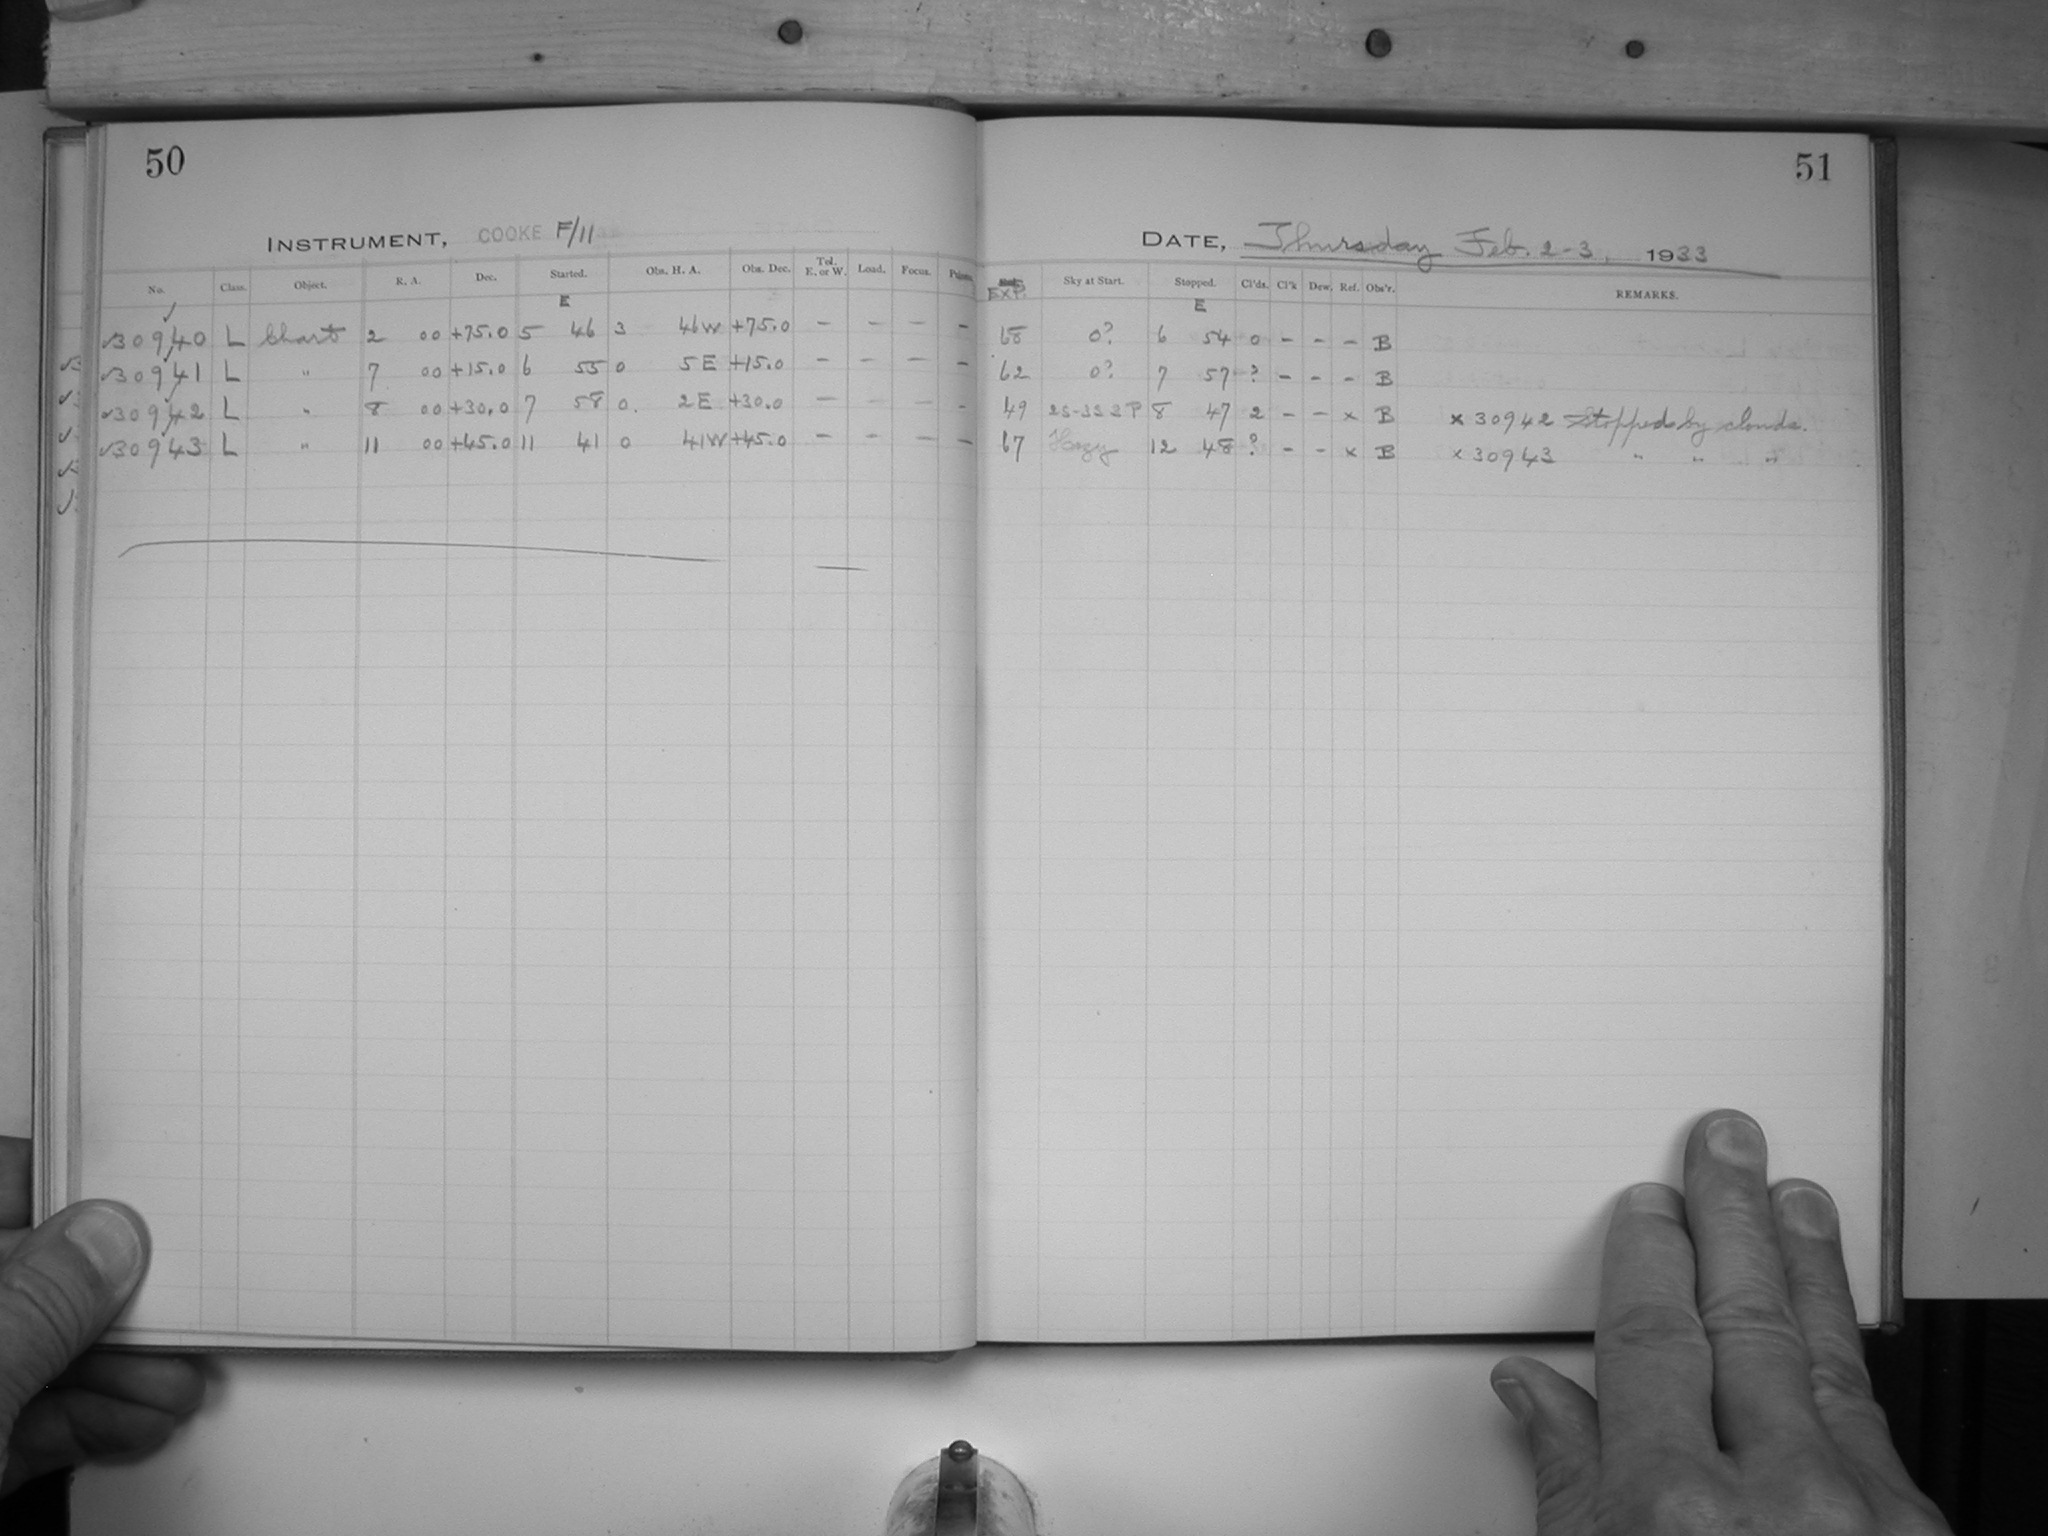 50
INSTRUMENT, COOKE F/11
No. Class. Object. R. A. Dec. Started. Obs. H. A. Obs. Dec. Tel. E. or W. Load. Focus.
E
✓30940 L Chart 2 00 +75.0 5 46 3 46W +75.0 — — — —
✓30941 L " 7 00 +15.0 6 55 0 5E +15.0 — — — —
✓30942 L " 8 00 +30.0 7 58 0. 2E +30.0 — — — -
✓30943 L " 11 00 +45.0 11 41 0 41W +45.0 — — — —
51
DATE, Thursday Feb. 2-3, 1933
EXP. Sky at Start. Stopped. Cl'ds. Cl'k Dew. Ref. Obs'r. REMARKS.
E
68 0? 6 54 0 - - - B
62 0? 7 57 ? - - - B
49 2S-3S 3P 8 47 2 - - x B x 30942 Stopped by clouds.
67 Hazy 12 48 ? - - x B x 30943 " " "